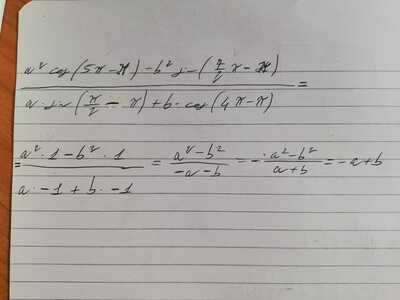 a² cos(5π-π) - b² sin(7/2 π - π)
a · sin(π/2 - π) + b · cos(4π-π) =
= a² · 1 - b² · 1 / a · -1 + b · -1 = a² - b² / -a - b = - a² - b² / a + b = -a + b